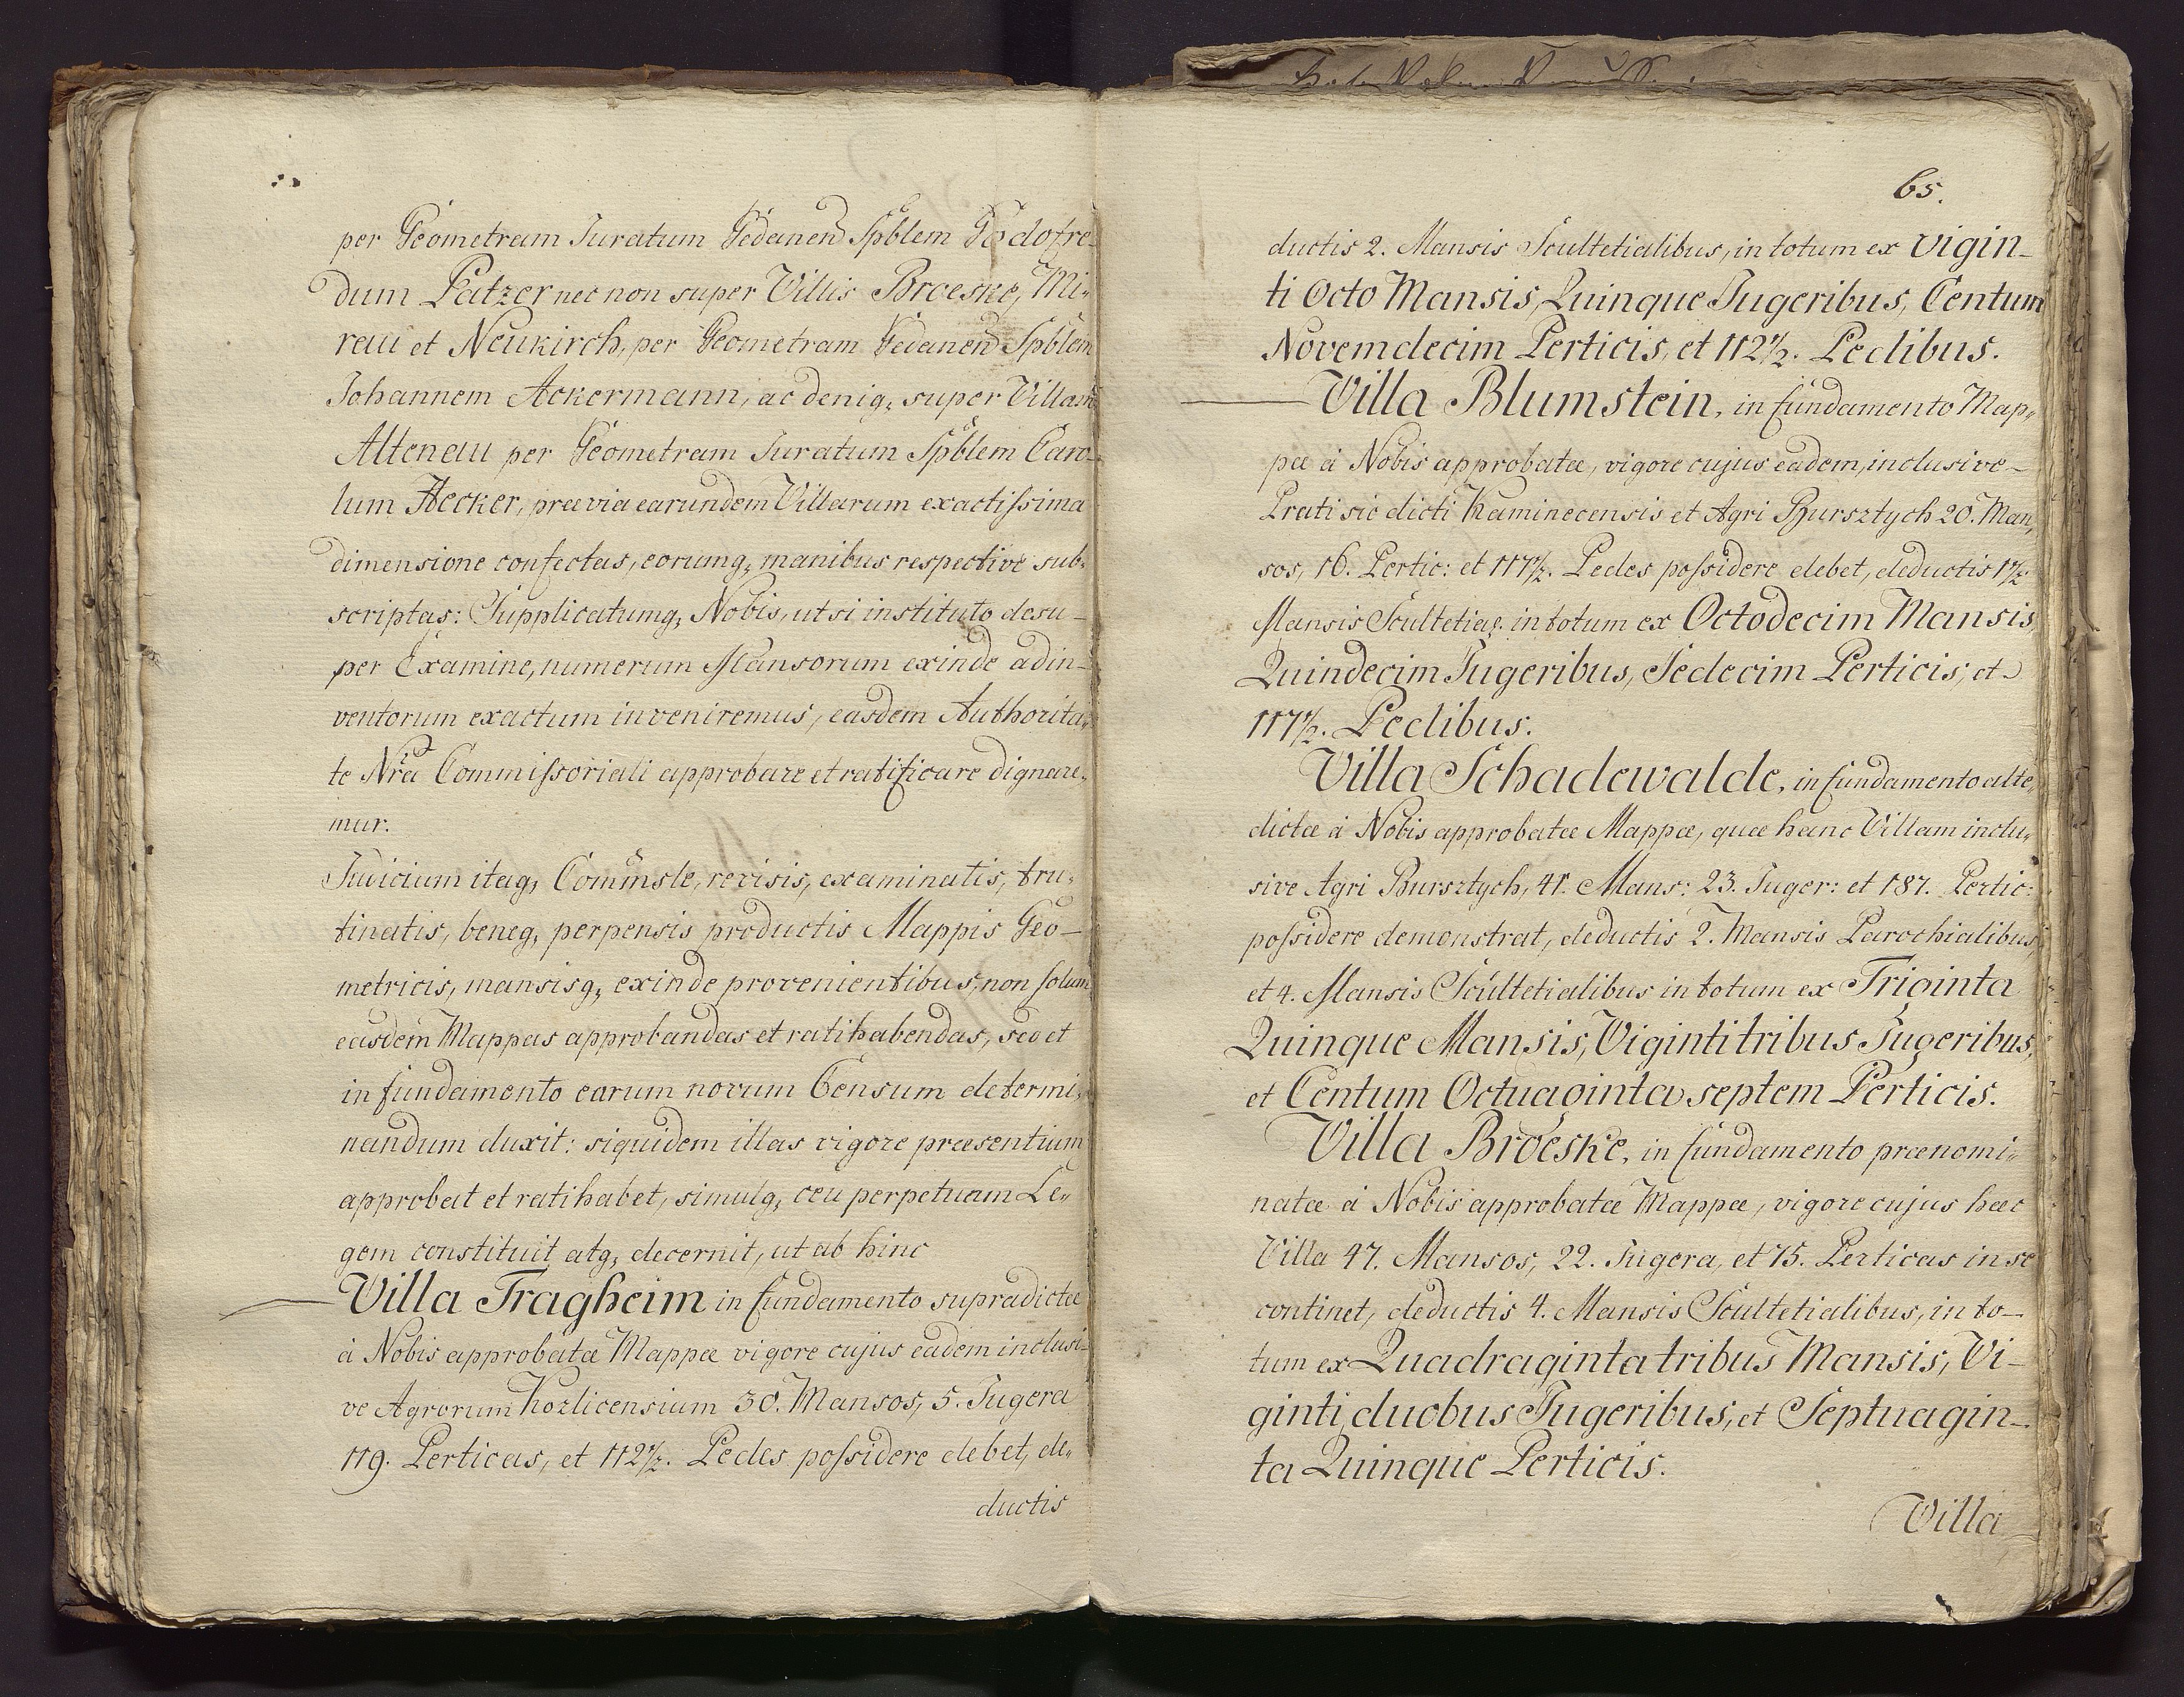 per Geometram Juratum Gedanen Spblem Godofre-
dum Patzer nec non super Villis Broeske, Mi-
rau et Neukirch, per Geometram Gedanen Spblem
Johannem Ackermann, ac deniq, super Villam
Altenau per Geometram Juratum Spblem Caro-
lum Hecker, prævia earundem Villarum exactissima
dimensione confectas, eorumq, manibus respective sub-
scriptas: Supplicatumq, Nobis, ut si instituto desu-
per Examine, numerum Mansorum exinde adin-
ventorum exactum inveniremus, easdem Authorita-
te Nrã Commissoriali approbare et ratificare dignare-
mur.
Judicium itaq, Commsle, revisis, examinatis, tru-
tinatis, beneq, perpensis productis Mappis Geo-
metricis, mansisq, exinde provenientibus, non solum
easdem Mappas approbandas et ratihabendas, sed et
in fundamento earum novum Censum determi-
nandum duxit: siquidem illas vigore præsentium
approbat et ratihabet, simulq, ceu perpetuam Le-
gem constituit atq, decernit, ut ab hinc
Villa Tragheim in fundamento supradictæ
à Nobis approbatæ Mappæ vigore cujus eadem inclusi-
ve Agrorum Kozlicensium 30. Mansos, 5. Jugera
119. Perticas, et 112 1/2. Pedes possidere debet, de-
ductis
65.
ductis 2. Mansis Scultetialibus, in totum ex Vigin-
ti Octo Mansis, Quinque Jugeribus, Centum
Novemdecim Perticis, et 112 1/2. Pedibus.
Villa Blumstein, in fundamento Map-
pæ à Nobis approbatæ, vigore cujus eadem, inclusive
Prati sic dicti Kaminecensis et Agri Bursztych 20. Man-
sos, 16. Pertic: et 117 1/2. Pedes possidere debet, deductis 1 1/2
Mansis Scultetial. in totum ex Octodecim Mansis,
Quindecim Jugeribus, Sedecim Perticis, et
117 1/2. Pedibus.
Villa Schadewalde, in fundamento alte-
dictæ à Nobis approbatæ Mappæ, quæ hanc Villam inclu-
sive Agri Bursztych, 41. Mans: 23. Juger: et 187. Pertic:
possidere demonstrat, deductis 2. Mansis Parochialibus,
et 4. Mansis Scultetialibus in totum ex Triginta
Quinque Mansis, Viginti tribus Jugeribus,
et Centum Octuaginta septem Perticis.
Villa Broeske, in fundamento prænomi-
natæ à Nobis approbatæ Mappæ, vigore cujus hæc
Villa 47. Mansos, 22. Jugera, et 75. Perticas in se
continet, deductis 4. Mansis Scultetialibus, in to-
tum ex Quadraginta tribus Mansis, Vi-
ginti duobus Jugeribus, et Septuagin-
ta Quinque Perticis.
Villa